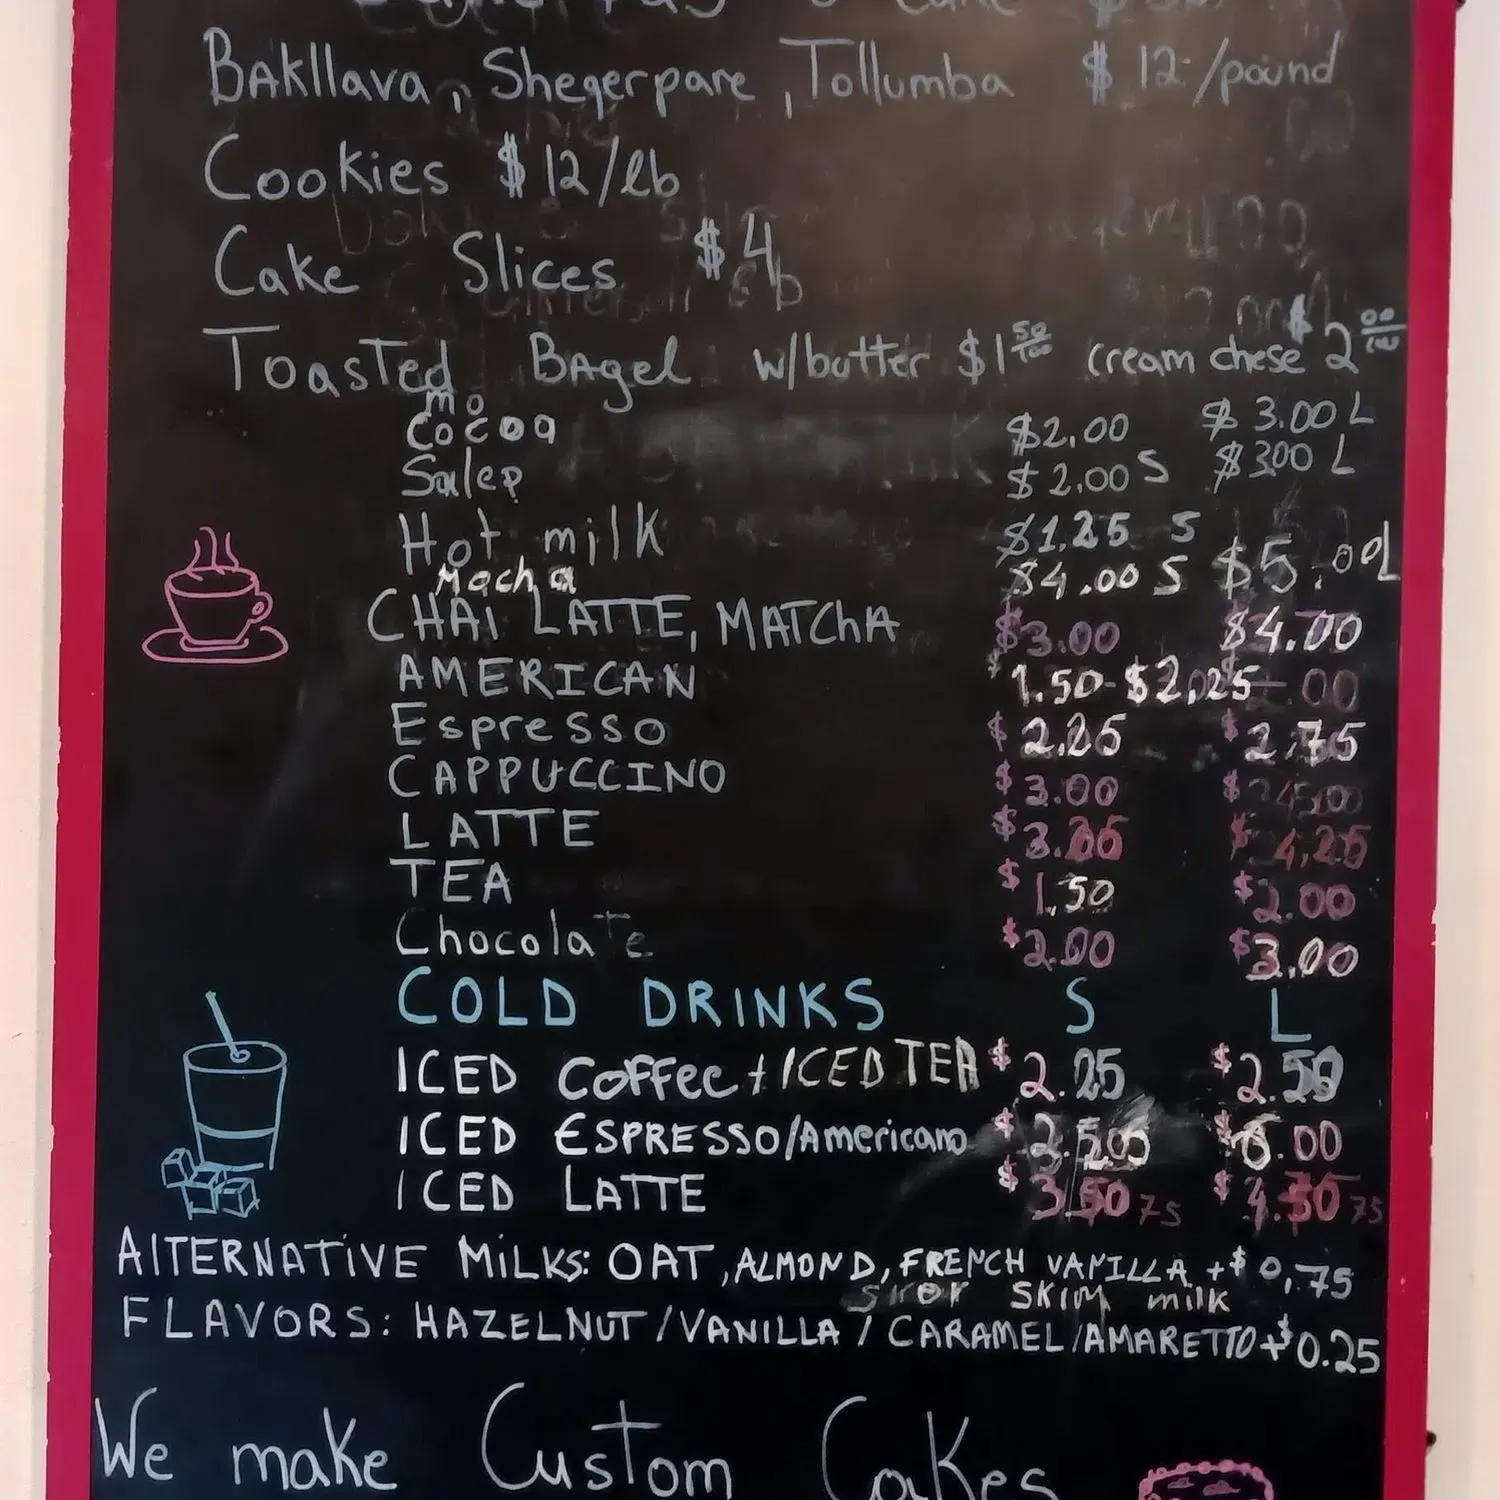 BAKllava, Shegerpare, Tollumba $12/pound
Cookies $12/lb
Cake Slices $4
Toasted Bagel w/butter $1 50/100 cream chese $2 00/100
Cocoa $2.00 $3.00 L
Salep $2.00 S $300 L
Hot milk $1.25 S
Mocha $4.00 S $5.00L
CHAI LATTE, MATChA $3.00 $4.00
AMERICAN $1.50-$2,25
Espresso $2.25 $2.75
CAPPUCCINO $3.00
LATTE $4,25
TEA $1.50 $2.00
Chocolate $2.00 $3.00
COLD DRINKS S L
ICED Coffee + ICED TEA $2.25 $2.50
ICED ESPRESSO/Americano
ICED LATTE $3.50 75 $4.50 75
AlTERNATiVE MiLKS: OAT, ALMOND, FRENCH VANILLA +$0,75
SKIM milk
FLAVORS: HAZELNUT/VANILLA/CARAMEL/AMARETTO +$0.25
We make Custom Cakes